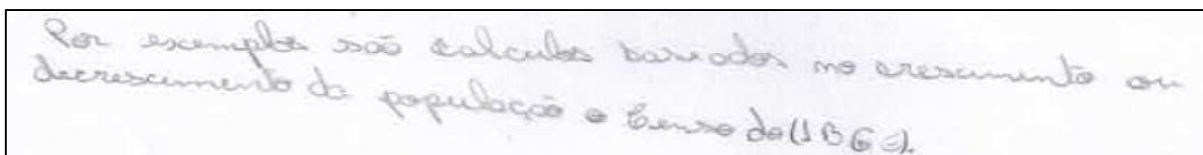 Por exemplos são calculos bareados no crescimento ou
decrescimento da população o Censo do (IBGE).